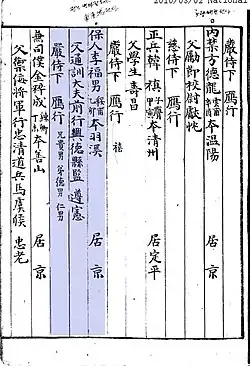 嚴侍下 鴈行
內禁方德龍 本溫陽
父勵節校尉獻兆
慈侍下 鴈行
正兵韓禛 甲子 本清州 居定平
父學生壽昌
嚴侍下 鴈行 禧
保人李福男 乙卯 本羽溪 居京
父通訓大夫前行興德縣監遵憲
嚴侍下 鴈行 兄貴男 弟德男 仁男
兼司僕金秤成 丁未 本善山 居京
父禦侮將軍行忠清道兵馬虞候忠老